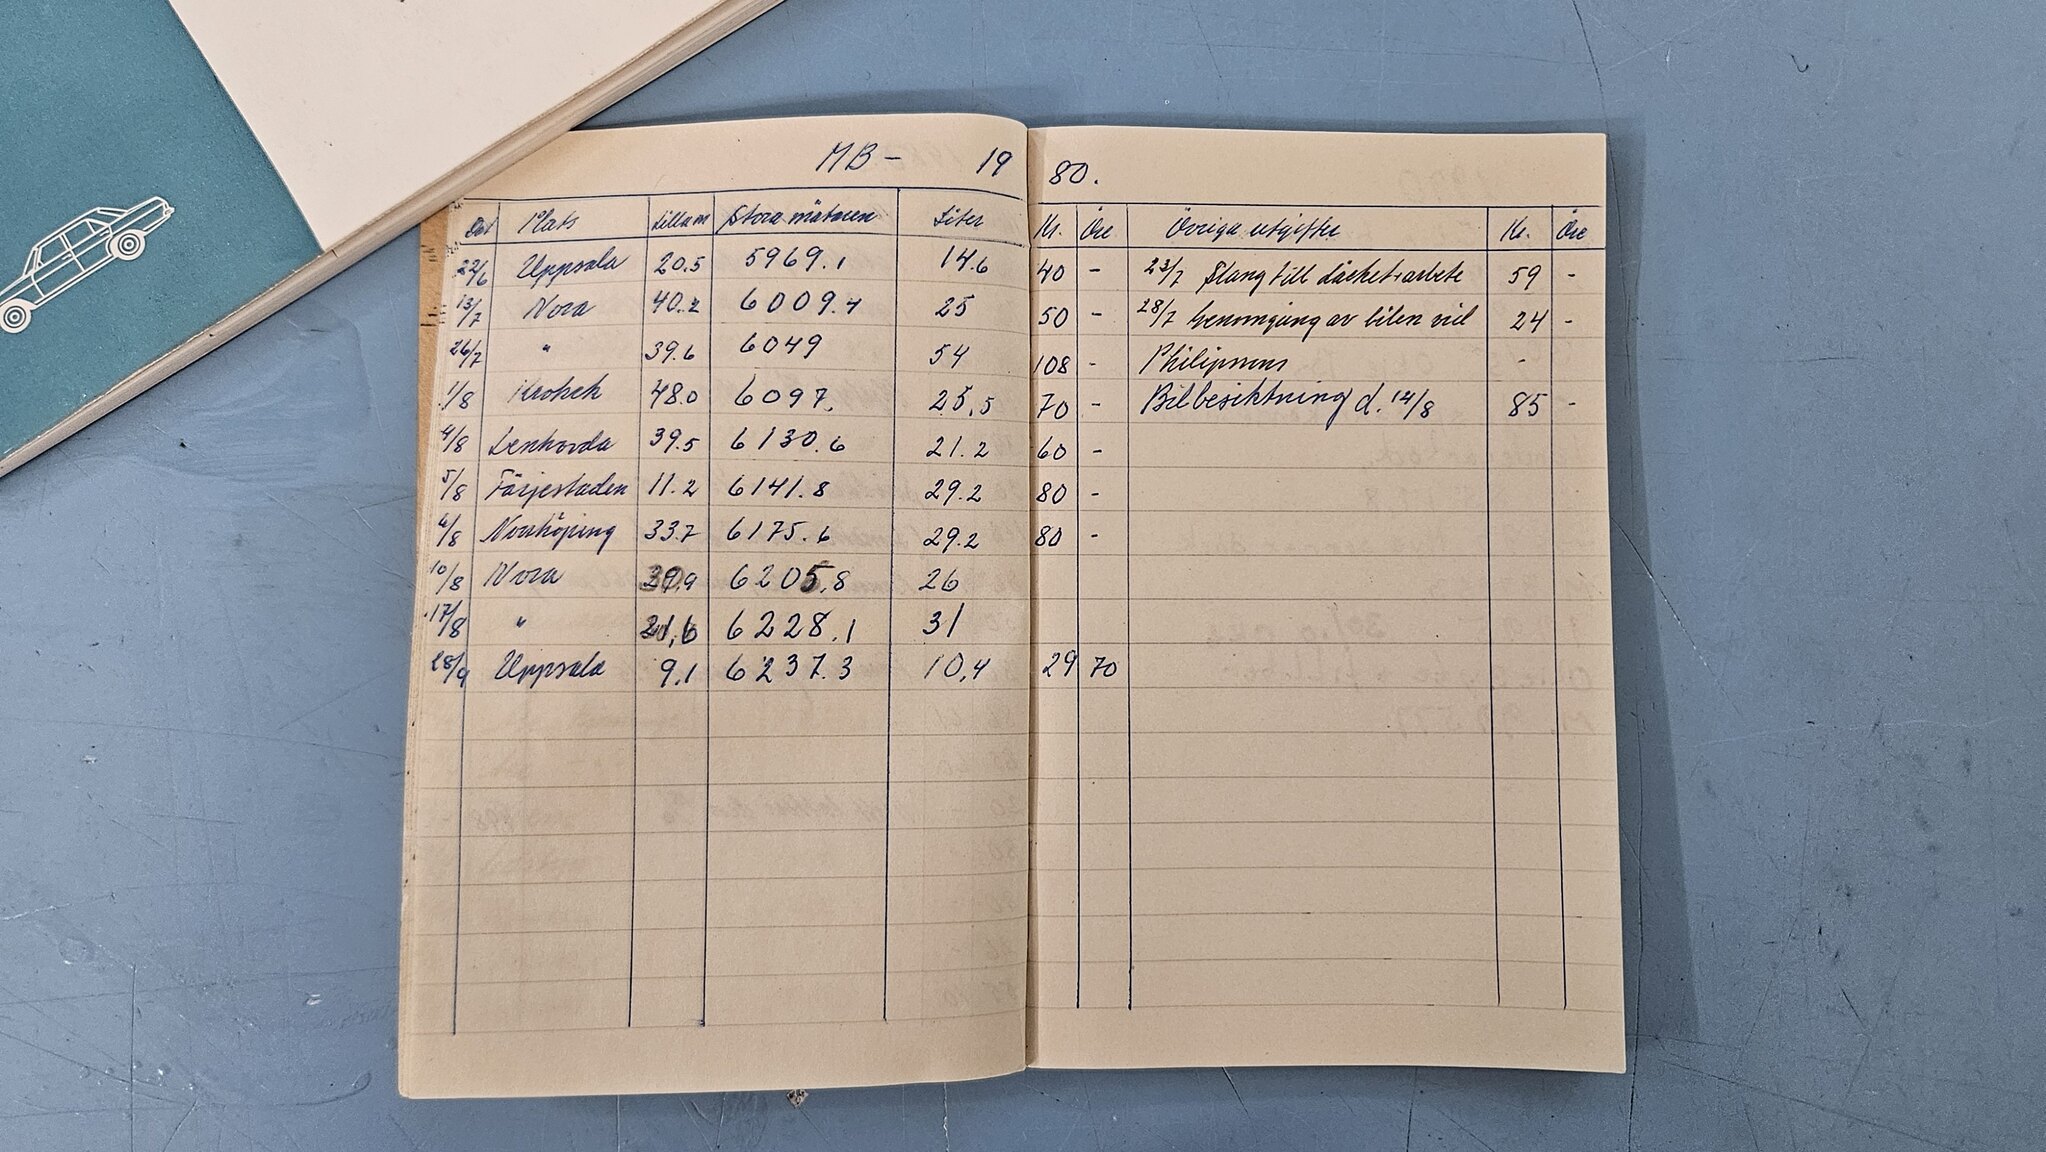 MB - 19 80.
Dat Plats Lillam Stora mätaren Liter Kr. Öre Övriga utgifter Kr. Öre
22/6 Uppsala 20.5 5969.1 14.6 40 - 23/7 Slang till däcket+arbete 59 -
13/7 Nora 40.2 6009.4 25 50 - 28/7 Genomgång av bilen vid 24 -
26/7 " 39.6 6049 54 108 - Philipsons -
1/8 48.0 6097. 25,5 70 - Bilbesiktning d. 14/8 85 -
4/8 Lenhovda 39.5 6130.6 21.2 60 -
5/8 Färjestaden 11.2 6141.8 29.2 80 -
6/8 Norrköping 33.7 6175.6 29.2 80 -
10/8 Nora 6205,8 26
17/8 " 6228.1 31
18/9 Uppsala 9.1 6237.3 10,4 29 70